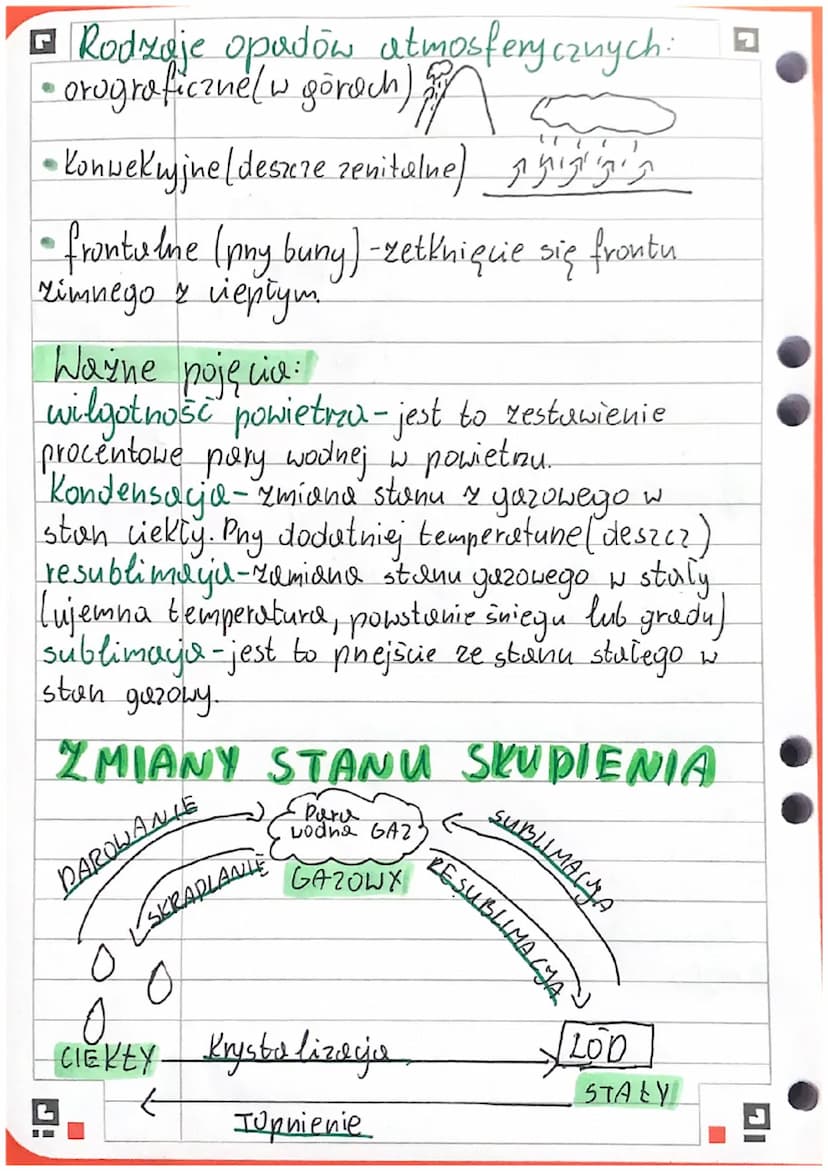 Rodzaje opadów atmosferycznych:
• orograficzne (w górach)
• Konwekcyjne (deszcze zenitalne)
• frontalne (przy burzy) - zetknięcie się frontu
zimnego z ciepłym.
Ważne pojęcia:
wilgotność powietrza - jest to zestawienie
procentowe pary wodnej w powietrzu.
Kondensacja - zmiana stanu z gazowego w
stan ciekły. Przy dodatniej temperaturze (deszcz)
resublimacja - zamiana stanu gazowego w stały
(ujemna temperatura, powstanie śniegu lub gradu)
sublimacja - jest to przejście ze stanu stałego w
stan gazowy.
ZMIANY STANU SKUPIENIA
PAROWANIE
Para
wodna GAZ
SUBLIMACJA
SKRAPLANIE
GAZOWY
RESUBLIMACJA
CIEKŁY
Krystalizacja
LÓD
STAŁY
Topnienie